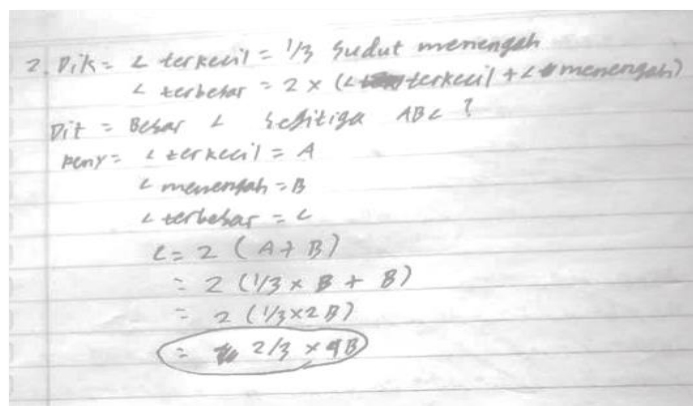 2. Dik = ∠ terkecil = 1/3 sudut menengah
∠ terbesar = 2 × (∠ terkecil + ∠ menengah)
Dit = Besar ∠ segitiga ABC ?
Peny = ∠ terkecil = A
∠ menengah = B
∠ terbesar = C
C = 2 (A + B)
= 2 (1/3 × B + B)
= 2 (1/3 × 2B)
= 2/3 × 4B